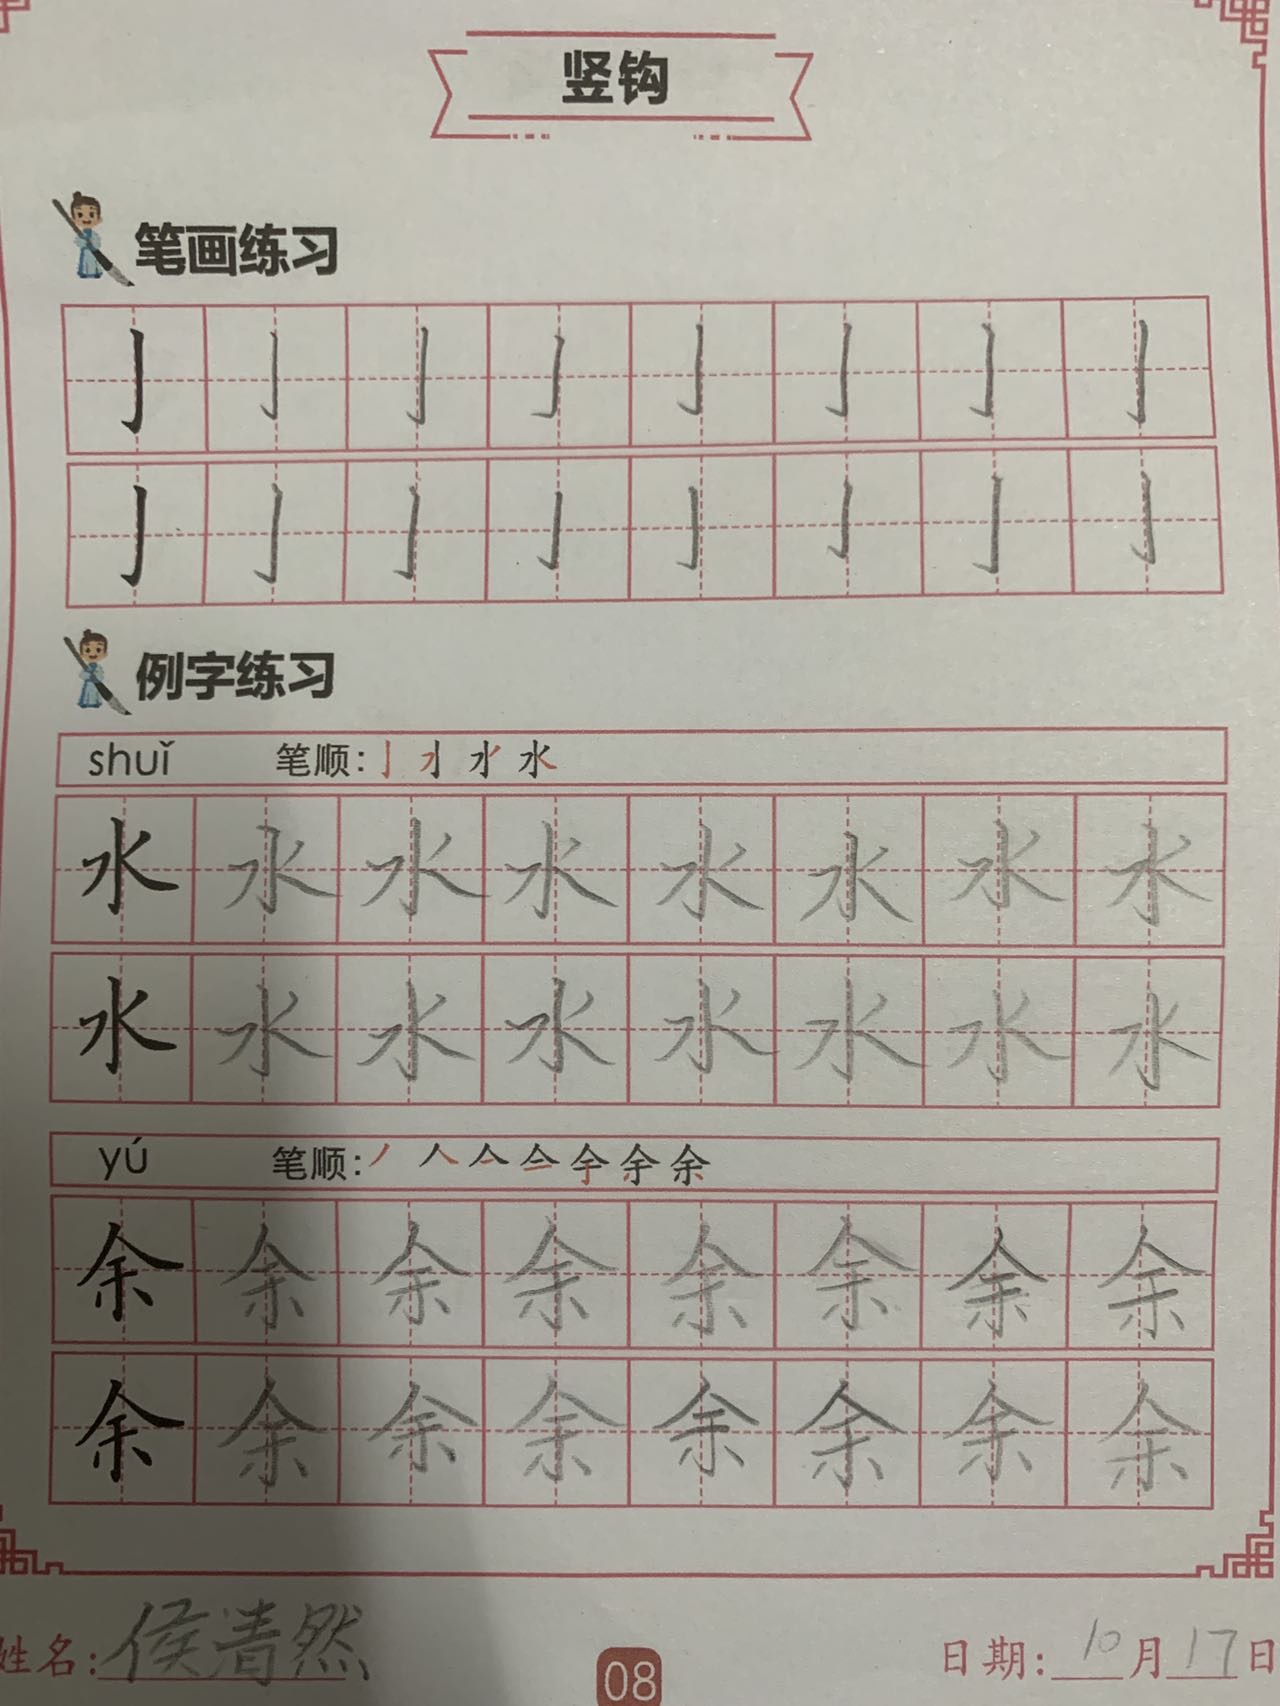 竖钩
笔画练习
亅亅亅亅亅亅亅亅
亅亅亅亅亅亅亅亅
例字练习
shuǐ 笔顺:
水水水水水水水水
水水水水水水水水
yú 笔顺:
余余余余余余余余
余余余余余余余余
姓名:侯清然 日期:10月17日
08